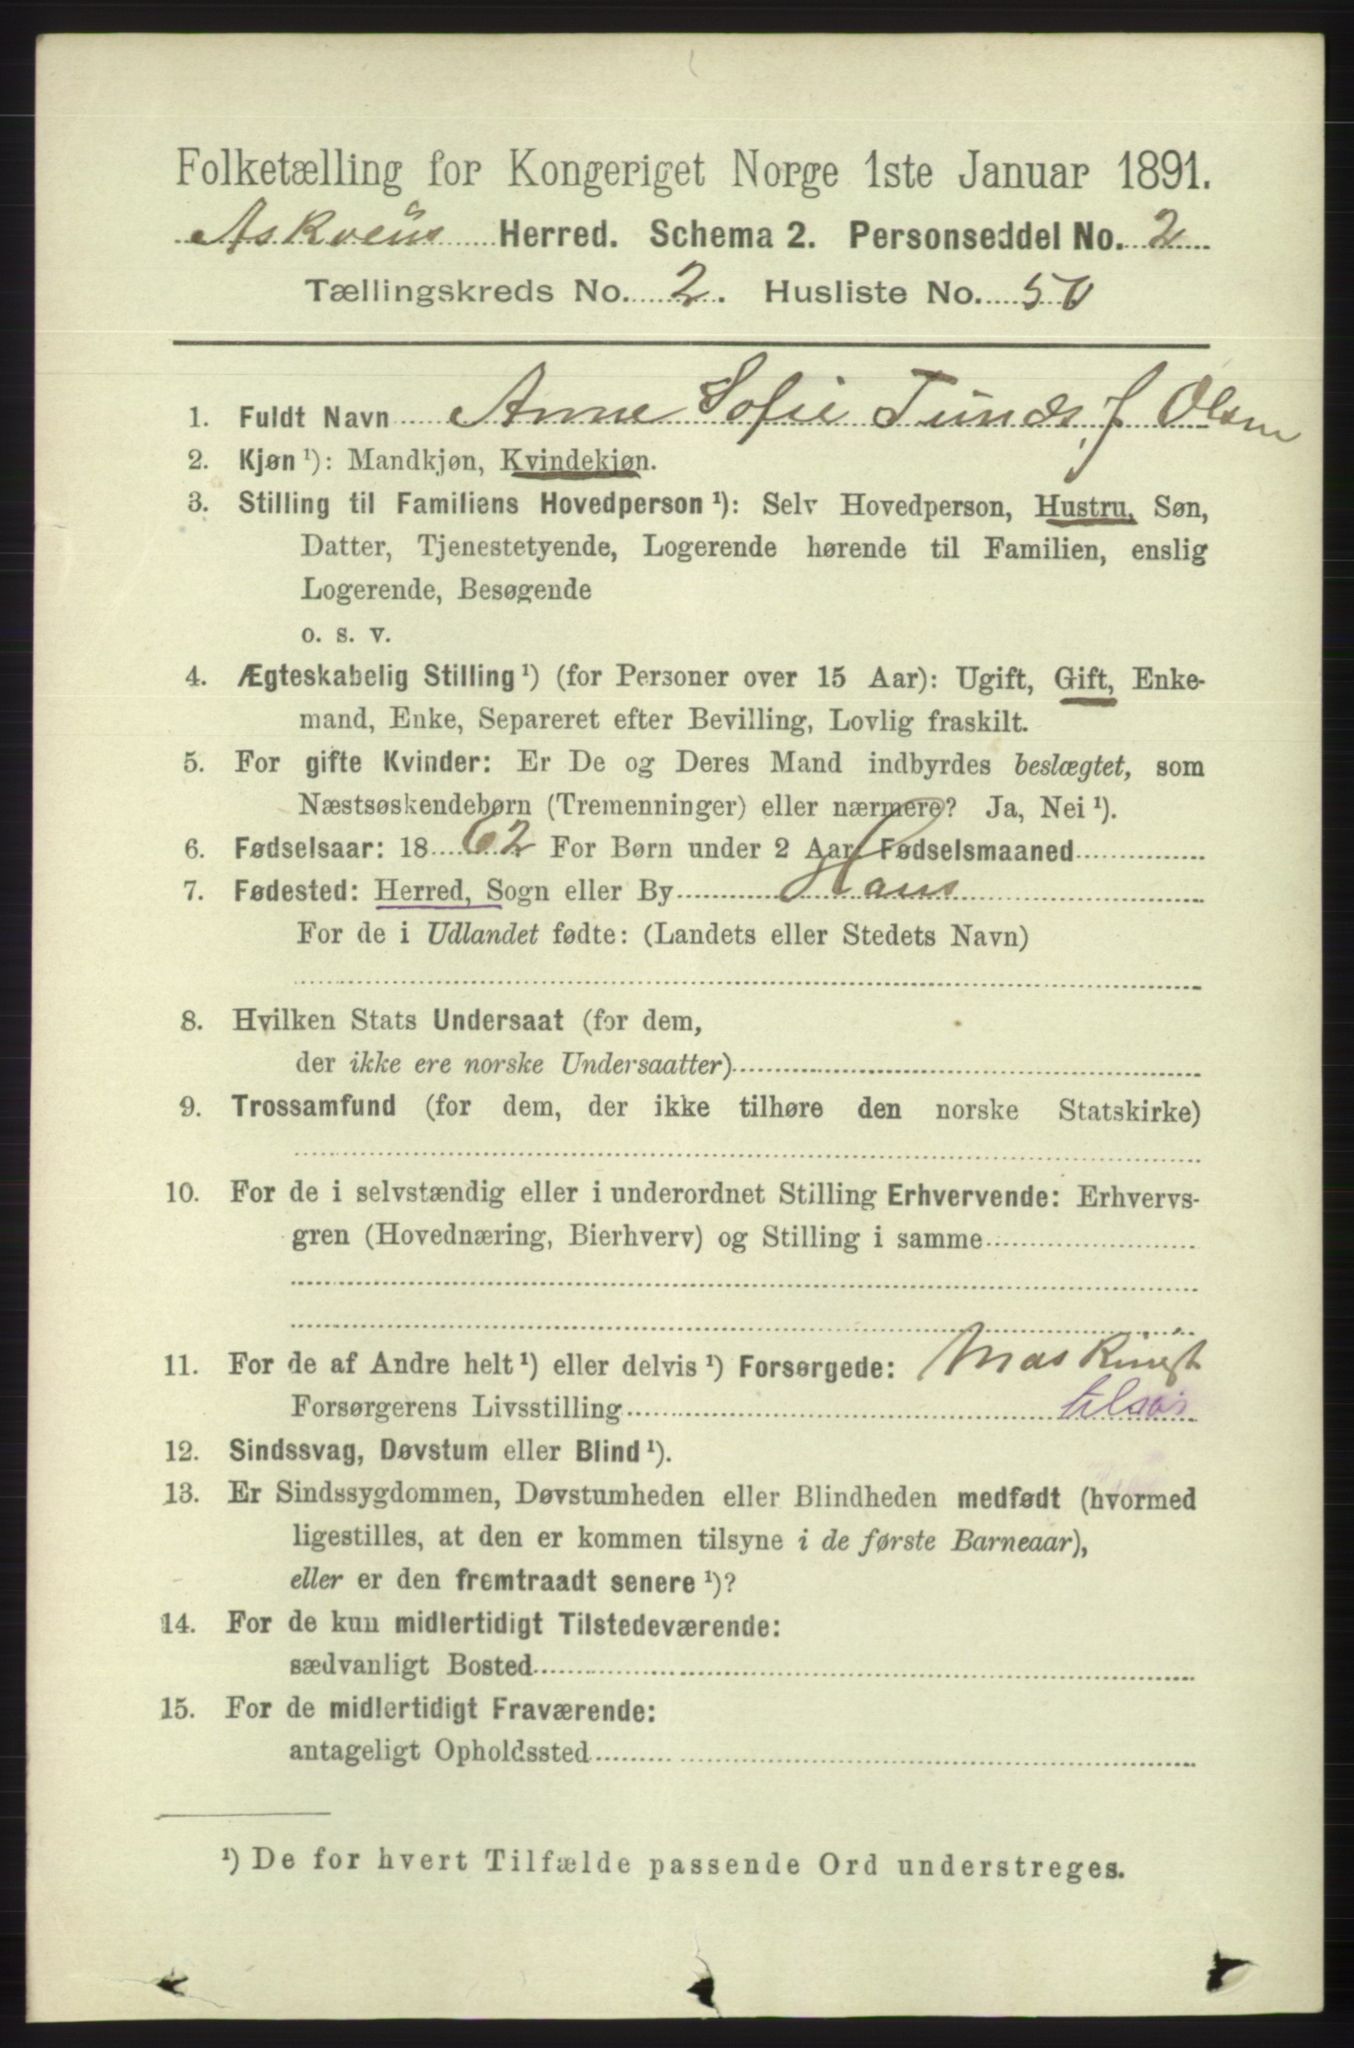 Folketælling for Kongeriget Norge 1ste Januar 1891.
Askvens Herred. Schema 2. Personseddel No. 2
Tællingskreds No. 2. Husliste No. 50
1. Fuldt Navn Anne Sofie Tunds, f Olsen
2. Kjøn ¹): Mandkjøn, Kvindekjøn.
3. Stilling til Familiens Hovedperson ¹): Selv Hovedperson, Hustru, Søn,
Datter, Tjenestetyende, Logerende hørende til Familien, enslig
Logerende, Besøgende
o. s. v.
4. Ægteskabelig Stilling ¹) (for Personer over 15 Aar): Ugift, Gift, Enke-
mand, Enke, Separeret efter Bevilling, Lovlig fraskilt.
5. For gifte Kvinder: Er De og Deres Mand indbyrdes beslægtet, som
Næstsøskendebørn (Tremenninger) eller nærmere? Ja, Nei ¹).
6. Fødselsaar: 18 62 For Børn under 2 Aar, Fødselsmaaned
7. Fødested: Herred, Sogn eller By Haus
For de i Udlandet fødte: (Landets eller Stedets Navn)
8. Hvilken Stats Undersaat (for dem,
der ikke ere norske Undersaatter)
9. Trossamfund (for dem, der ikke tilhøre den norske Statskirke)
10. For de i selvstændig eller i underordnet Stilling Erhvervende: Erhvervs-
gren (Hovednæring, Bierhverv) og Stilling i samme
11. For de af Andre helt ¹) eller delvis ¹) Forsørgede: Maskinist
Forsørgerens Livsstilling tilsøs
12. Sindssvag, Døvstum eller Blind ¹).
13. Er Sindssygdommen, Døvstumheden eller Blindheden medfødt (hvormed
ligestilles, at den er kommen tilsyne i de første Barneaar),
eller er den fremtraadt senere ¹)?
14. For de kun midlertidigt Tilstedeværende:
sædvanligt Bosted
15. For de midlertidigt Fraværende:
antageligt Opholdssted
¹) De for hvert Tilfælde passende Ord understreges.